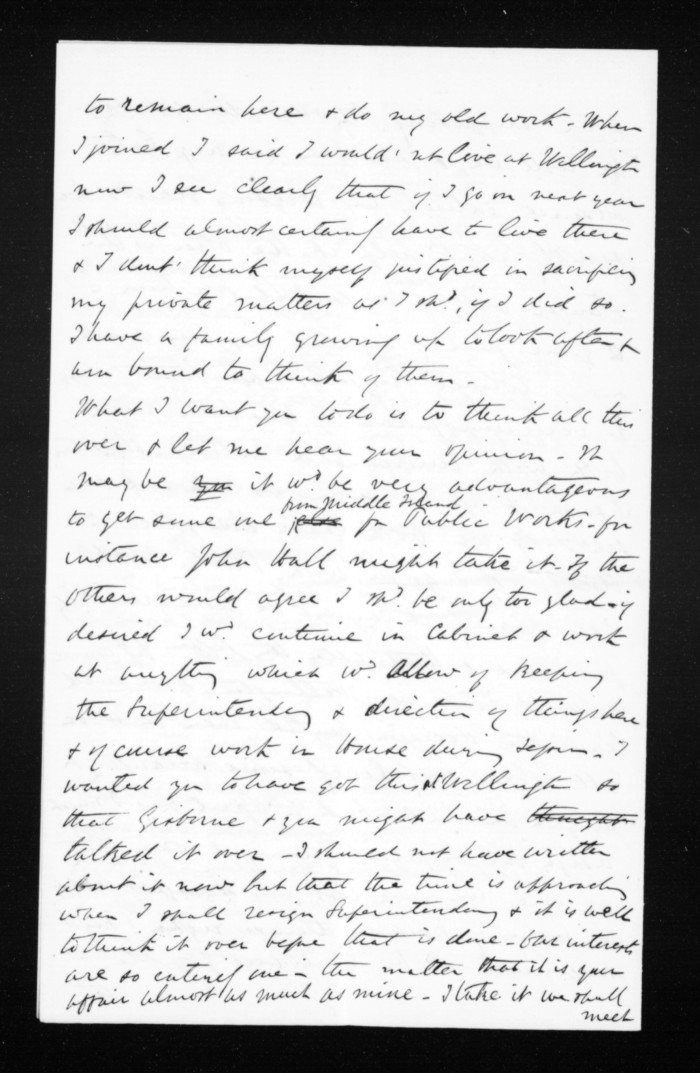 to remain here & do my old work - When
I joined I said I would'nt live at Wellingtn
now I see clearly that if I go on next year
I should almost certainly have to live there
& I dont think myself justified in sacrificing
my private matters as I shd., if I did so.
I have a family growing up to look after &
am bound to think of them -
What I want you to do is to think all this
over & let me hear your opinion - It
may be you it wd. be very advantageous
from Middle Island
to get some one else for Public Works - for
instance John Hall might take it - If the
others would agree I shd. be only too glad - if
desired I wd. continue in Cabinet & work
at anything which wd. allow of keeping
the Superintendency & direction of things here
& of course work in House during session - I
wanted you to have got this at Wellington so
that Gisborne & you might have thought
talked it over - I should not have written
about it now but that the time is approaching
when I shall resign Superintendency & it is well
to think it over before that is done - Our interests
are so entirely one in the matter that it is your
affair almost as much as mine - I take it we shall
meet